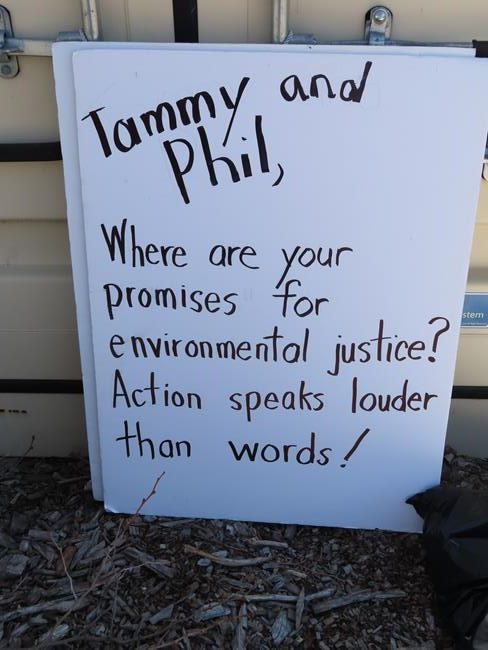 Tammy and
Phil,
Where are your
promises for
environmental justice?
Action speaks louder
than words!
stem